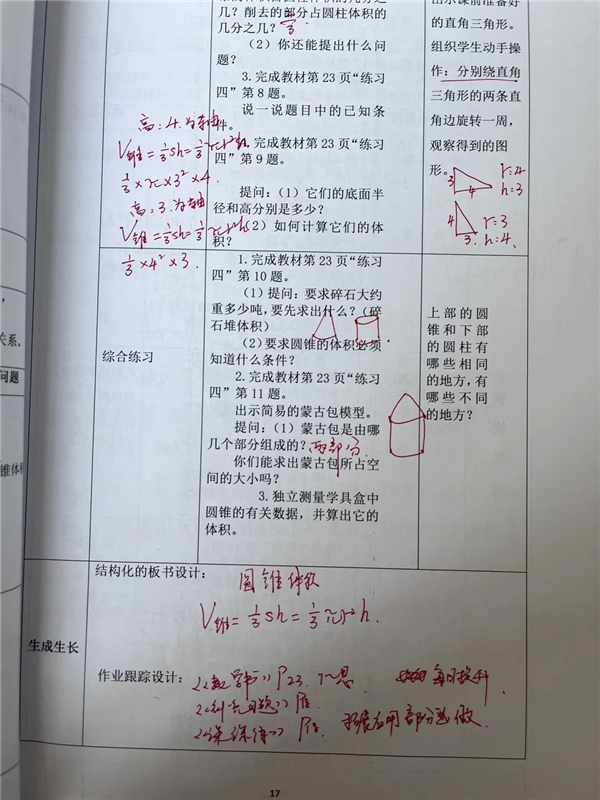 几？削去的部分占圆柱体积的
几分之几？
（2）你还能提出什么问
题？
3.完成教材第 23 页“练习
四”第 8 题。
说一说题目中的已知条
件。
4.完成教材第 23 页“练习
四”第 9 题。
提问：（1）它们的底面半
径和高分别是多少？
（2）如何计算它们的体
积？
高：4.为轴
V锥=⅓sh=⅓πr²h
⅓×π×3²×4
高：3.为轴
V锥=⅓sh=⅓πr²h
⅓×4²×3.
出示课前准备好
的直角三角形。
组织学生动手操
作：分别绕直角
三角形的两条直
角边旋转一周，
观察得到的图
形。
3
4
r=4
h=3
4
3.
r=3
h=4.
关系。
问题
锥体积
综合练习
1.完成教材第 23 页“练习
四”第 10 题。
（1）提问：要求碎石大约
重多少吨，要先求出什么？（碎
石堆体积）
（2）要求圆锥的体积必须
知道什么条件？
2.完成教材第 23 页“练习
四”第 11 题。
出示简易的蒙古包模型。
提问：（1）蒙古包是由哪
几个部分组成的？两部分
你们能求出蒙古包所占空
间的大小吗？
3.独立测量学具盒中
圆锥的有关数据，并算出它的
体积。
上部的圆
锥和下部
的圆柱有
哪些相同
的地方，有
哪些不同
的地方？
生成生长
结构化的板书设计：
圆锥体积
V锥=⅓sh=⅓πr²h.
作业跟踪设计：
P23.
每日提升
拓展应用部分选做
17